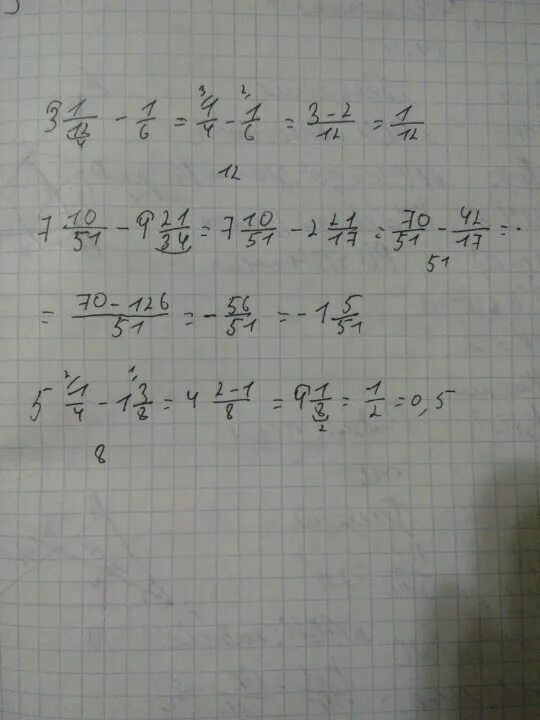 3 1/12 4 - 1/6 = 3/ 1/4 - 2/ 1/6 = 3-2/12 = 1/12
12
7 10/51 - 4 21/34 = 7 10/51 - 2 21/17 = 70/51 - 42/17 =
51
= 70-126/51 = - 56/51 = -1 5/51
5 2/ 1/4 - 1 1/ 3/8 = 4 2-1/8 = 4 1/8 2 = 1/2 = 0,5
8